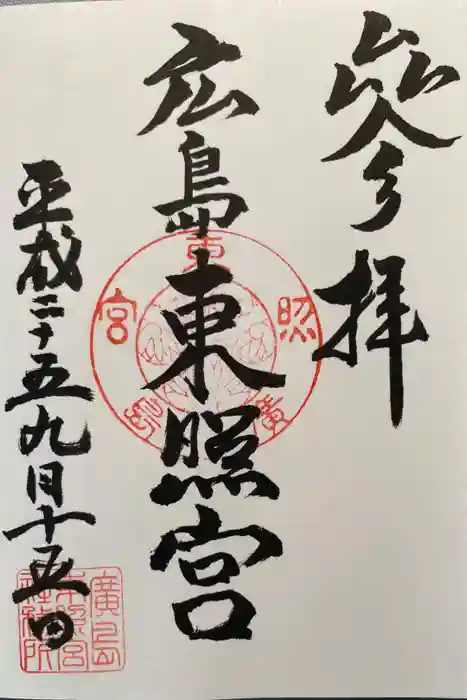 參拝
広島東照宮
平成二十五九月十五日
東照宮廣島
廣島東照宮社務所